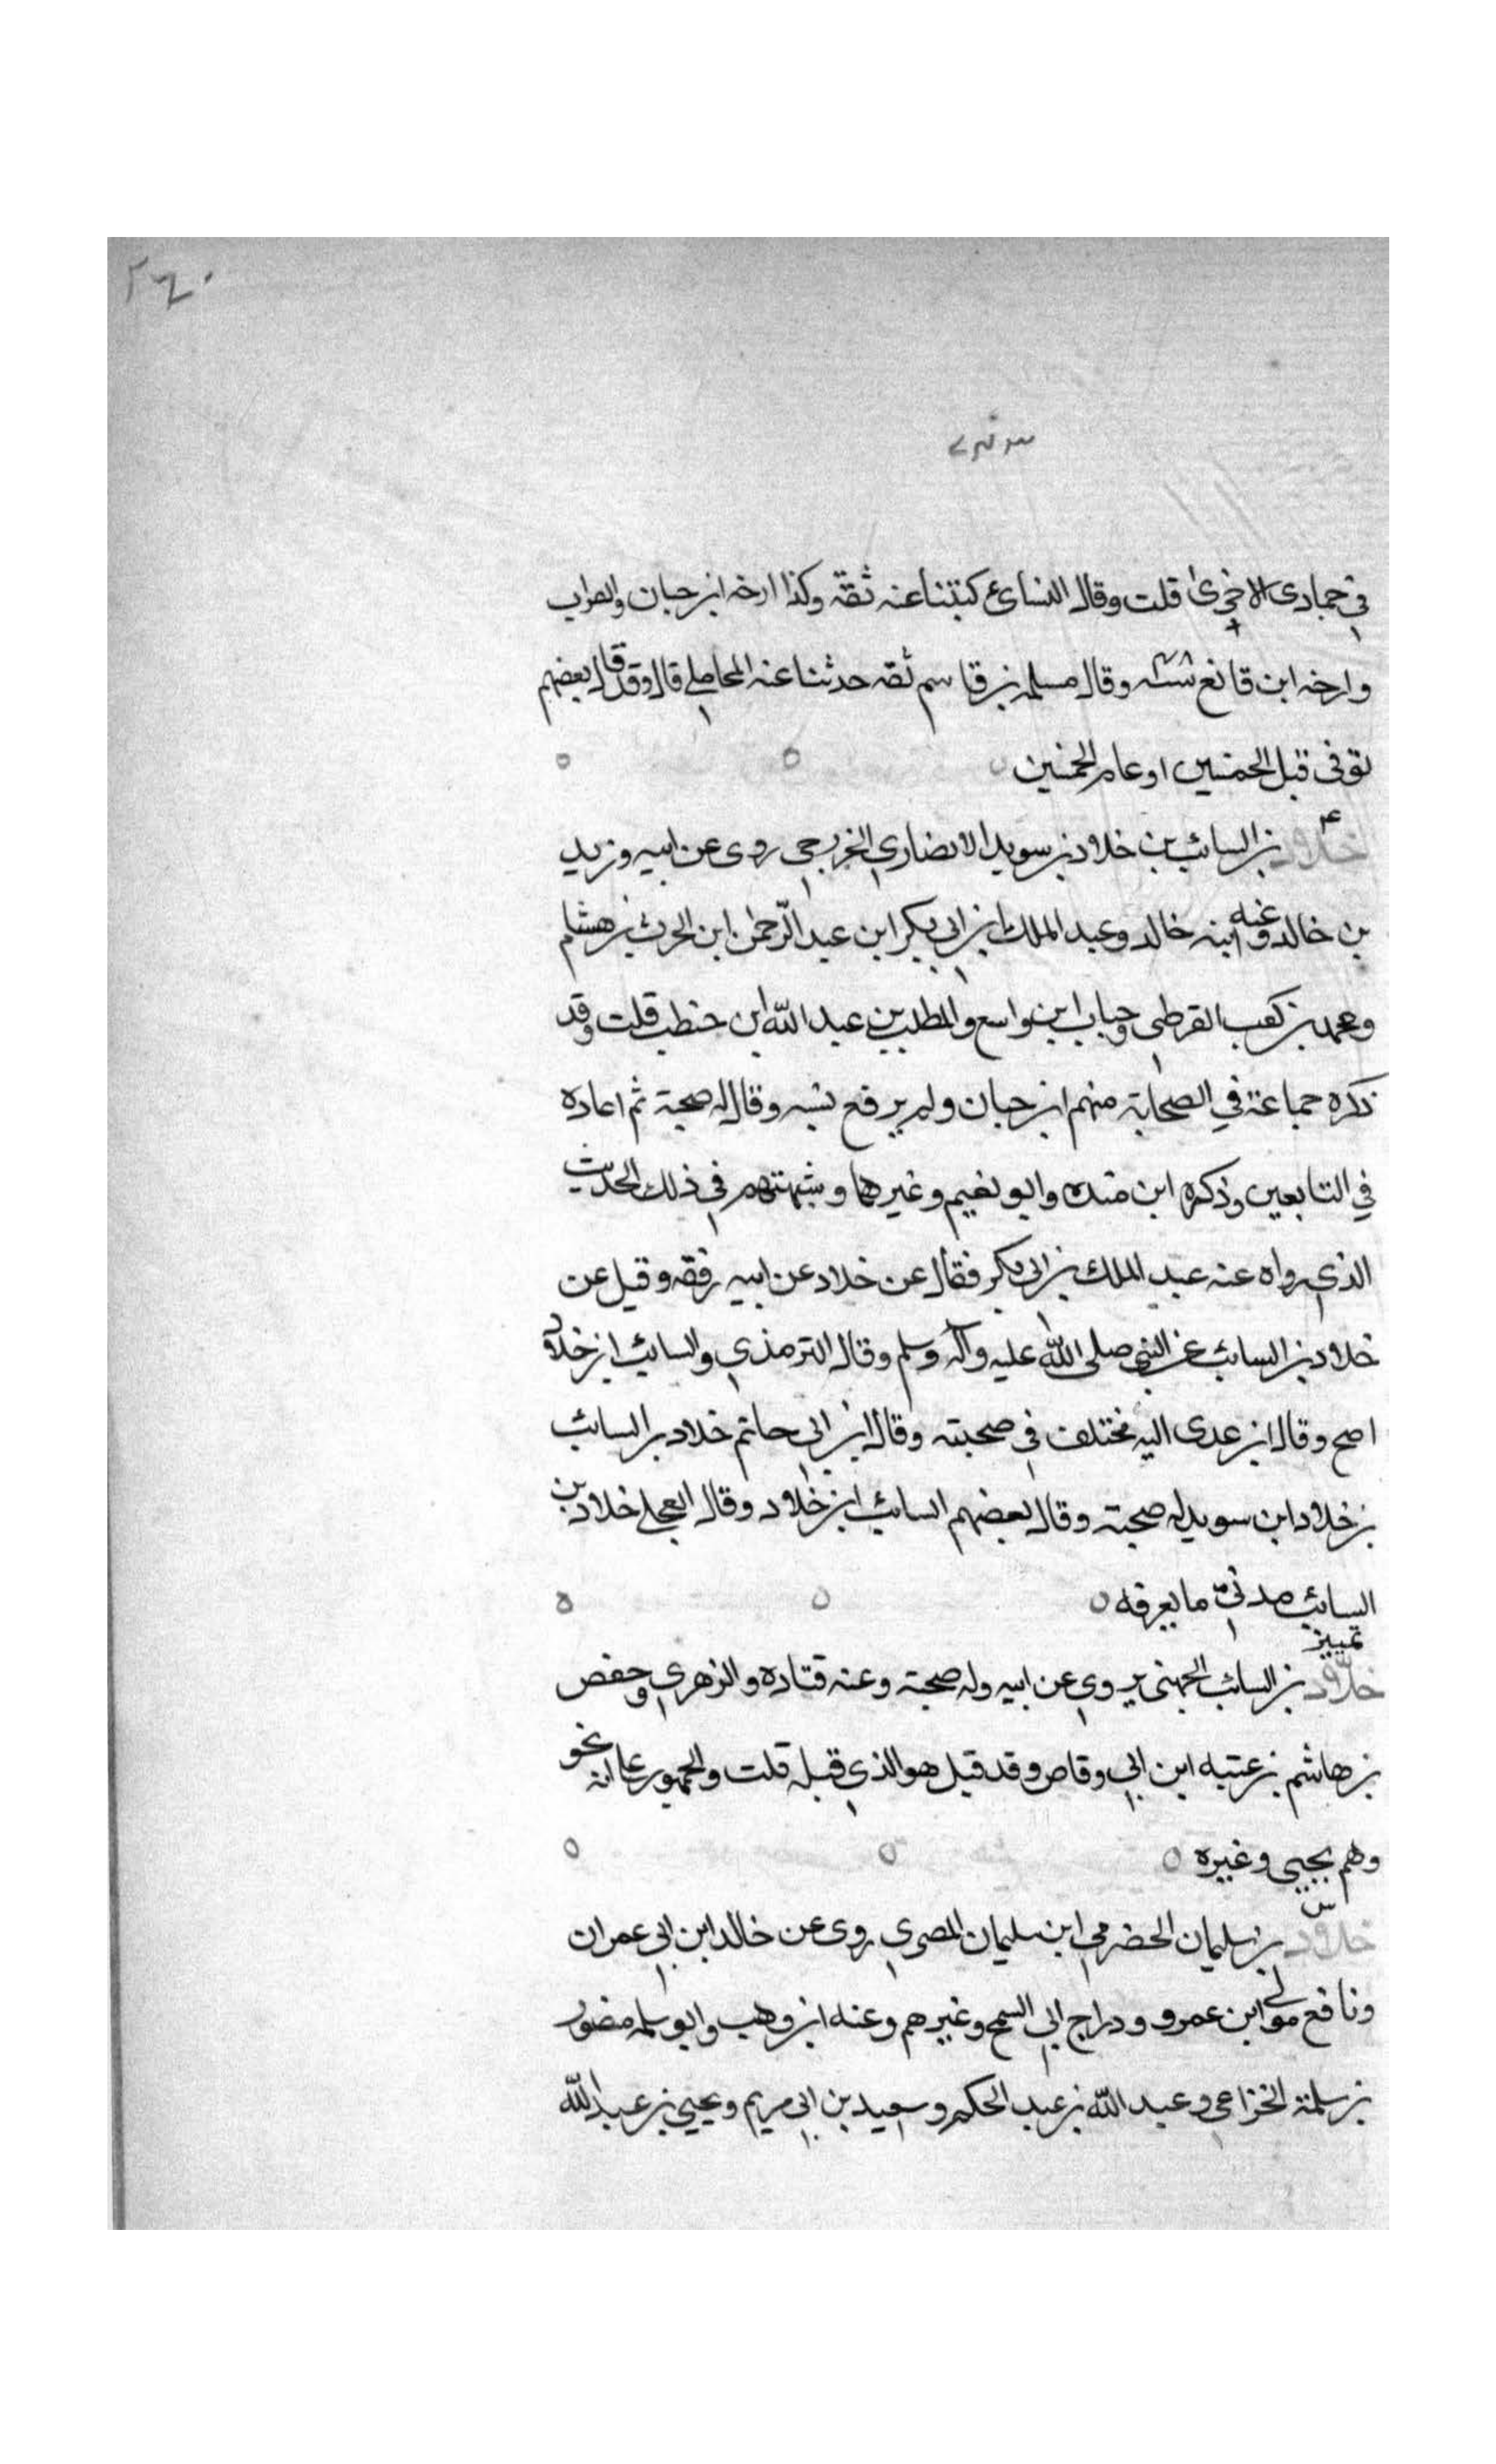 ٢٤٠
في جمادى الاخرى قلت وقال النسائي كتبنا عنه ثقة وكذا ارخه ابن حبان والصواب
وارخه ابن قانع سنة وقال مسلمه بن قاسم ثقه حدثنا عنه المحاملي قال وقد قال بعضهم
توفى قبل الخمسين او عام الخمسين
ع
خلاد بن السائب بن خلاد بن سويد الانصاري الخزرجي روى عن ابيه وزيد
بن خالد وعنه ابنه خالد وعبد الملك ابن ابي بكر ابن عبد الرحمن ابن الحرث بن هشام
ومحمد بن كعب القرظي وحبان ابن واسع والمطلب بن عبد الله ابن حنطب قلت وقد
ذكره جماعة في الصحابة منهم ابن حبان ولم يرفع نسبه وقال له صحبة ثم اعاده
في التابعين وذكره ابن منده وابو نعيم وغيرهما وشبهتهم في ذلك الحديث
الذي رواه عنه عبد الملك بن ابي بكر فقال عن خلاد عن ابيه رفعه وقيل عن
خلاد بن السائب عن النبي صلى الله عليه وآله وسلم وقال الترمذي والسائب ابن خلاد
اصح وقال ابن عدى اليه مختلف في صحبته وقال ابن ابي حاتم خلاد بن السائب
بن خلاد ابن سويد له صحبة وقال بعضهم السائب ابن خلاد وقال العجلي خلاد بن
السائب مدني ما يعرفه
تمييز
خلاد بن السائب الجهني يروي عن ابيه وله صحبة وعنه قتاده والزهري وحفص
بن هاشم بن عتبه ابن ابي وقاص وقد قيل هو الذي قبله قلت والجمهور على انه نحو
وهم يحيى وغيره
س
خلاد بن سليمان الحضرمي ابن سليمان المصري روى عن خالد ابن ابي عمران
ونافع مولى ابن عمرو ودراج ابي السمح وغيرهم وعنه ابن وهب وابو سلمه منصور
بن سلمة الخزاعي وعبد الله بن عبد الحكم وسعيد بن ابي مريم ويحيى بن عبد الله